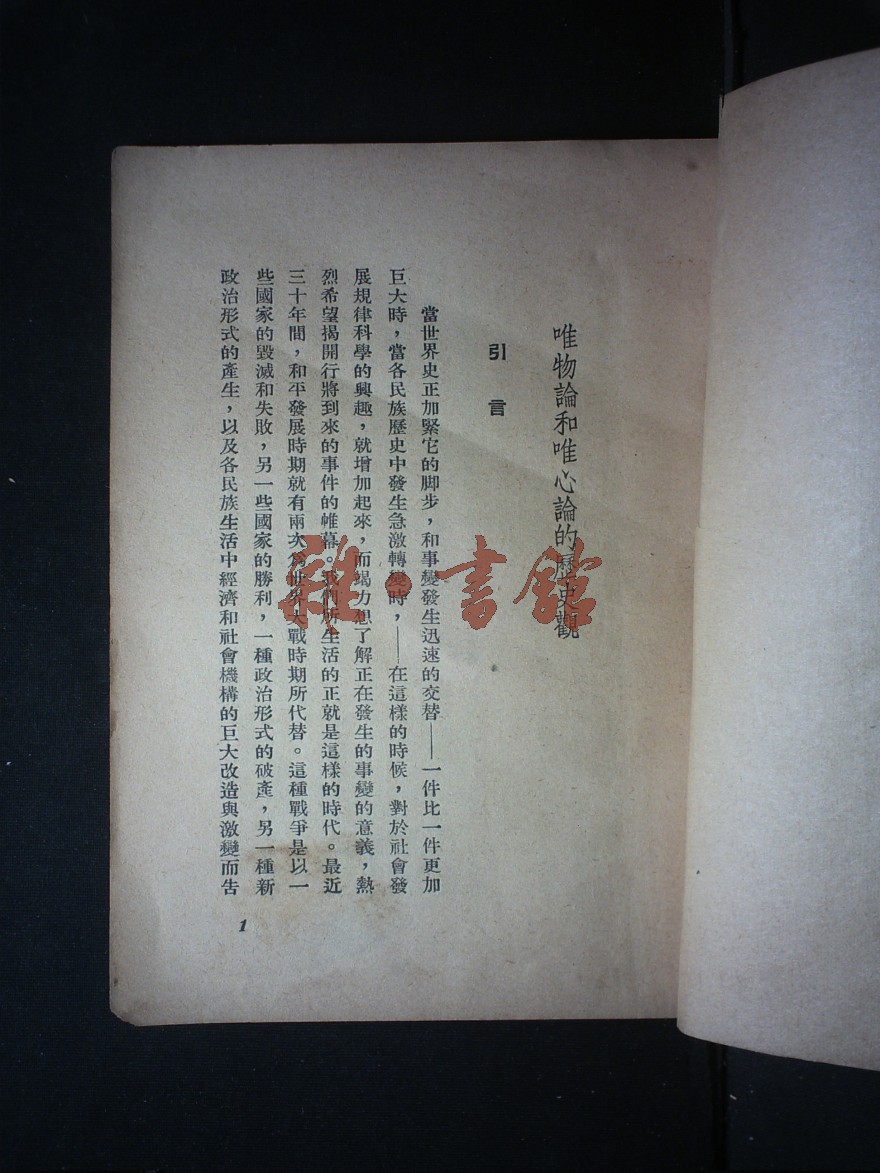 唯物論和唯心論的歷史觀
引言
當世界史正加緊它的脚步，和事變發生迅速的交替——一件比一件更加
巨大時，當各民族歷史中發生急激轉變時，——在這樣的時候，對於社會發
展規律科學的興趣，就增加起來，而竭力想了解正在發生的事變的意義，熱
烈希望揭開行將到來的事件的帷幕。我們所生活的正就是這樣的時代。最近
三十年間，和平發展時期就有兩次為世界大戰時期所代替。這種戰爭是以一
些國家的毀滅和失敗，另一些國家的勝利，一種政治形式的破產，另一種新
政治形式的產生，以及各民族生活中經濟和社會機構的巨大改造與激變而告
1
雜·書館